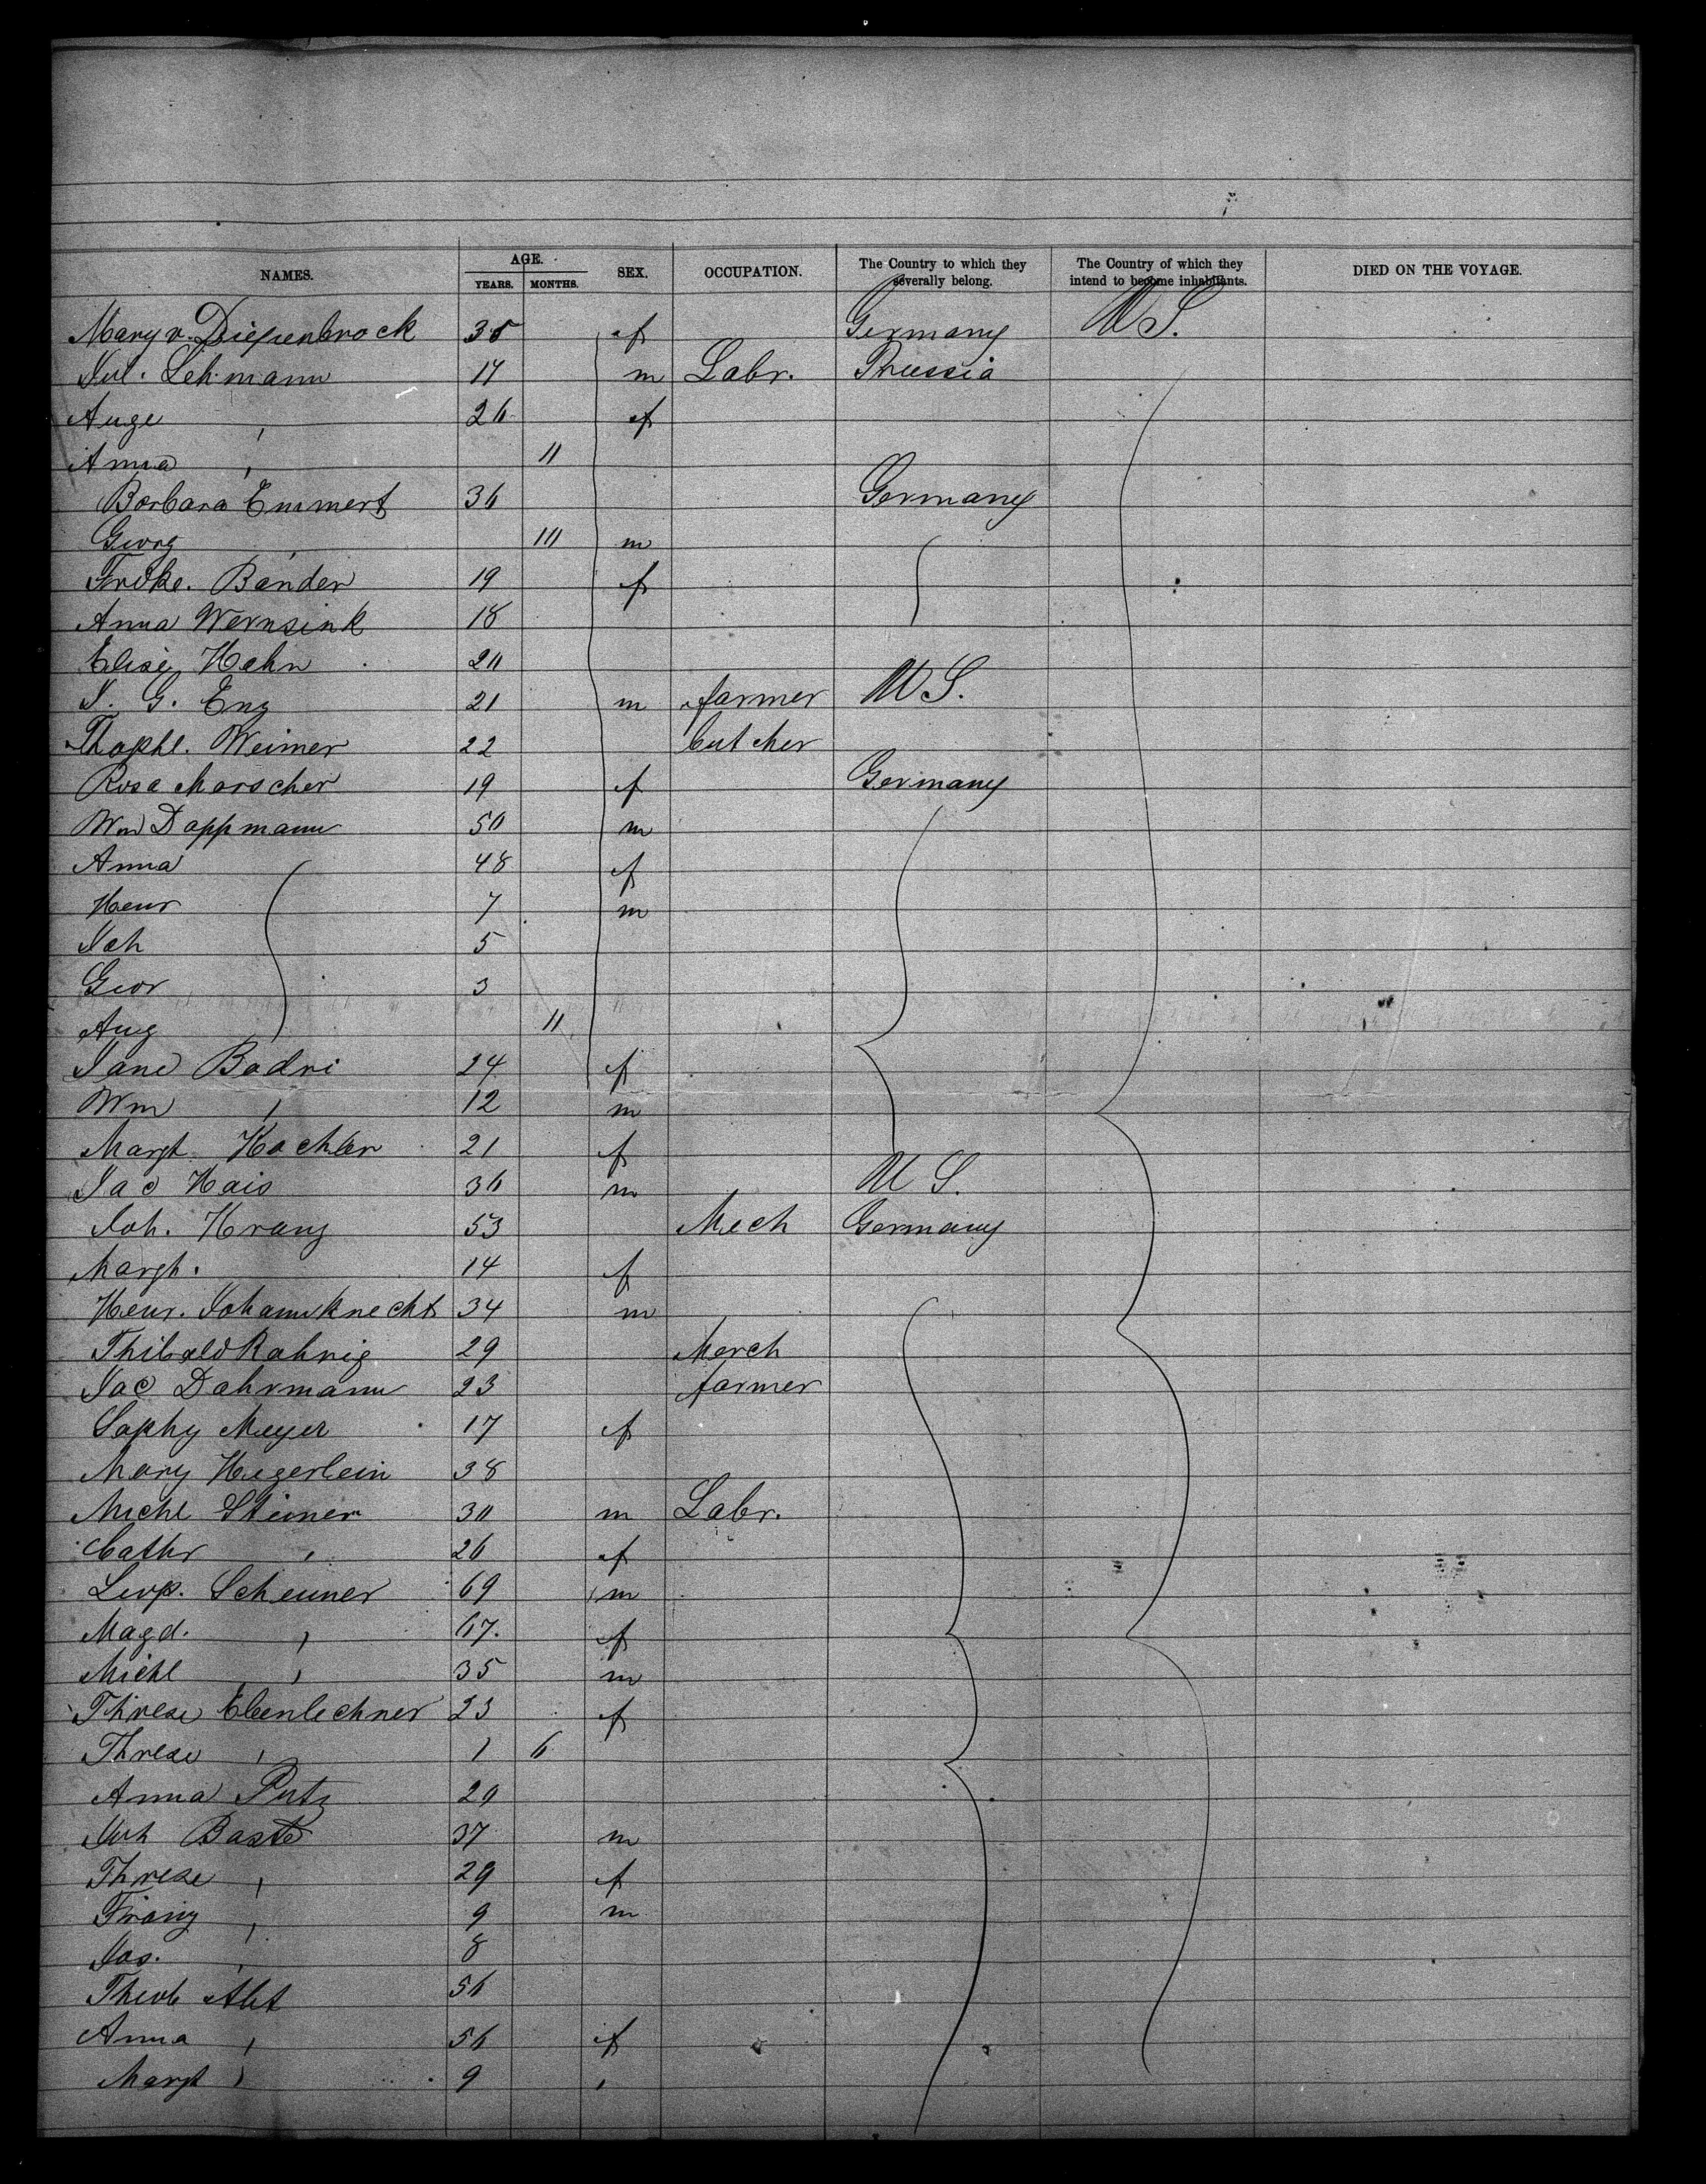 NAMES. AGE. YEARS. MONTHS. SEX. OCCUPATION. The Country to which they severally belong. The Country of which they intend to become inhabitants. DIED ON THE VOYAGE.
Mary v. Diepenbrock 35 f Germany U S.
Jul. Lehmann 17 m Labr. Prussia
Auge " 26 f
Anna " 11
Barbara Emmert 36 Germany
Georg " 10 m
Fredke. Bander 19 f
Anna Wernsink 18
Elise Hahn 20
J. G. Eng 21 m farmer U S.
Thophl. Weimer 22 butcher
Rosa Marscher 19 f Germany
Wm Dappmann 50 m
Anna 48 f
Henr 7 m
Joh 5
Geor 3
Aug 11
Jane Badri 24 f
Wm " 12 m
Margt. Kachler 21 f
Jac Hais 36 m U S.
Joh. Kranz 53 Mech Germany
Margh. 14 f
Henr. Johannknecht 34 m
Thibald Rahnig 29 Merch
Jac Dahrmann 23 farmer
Sophy Meyer 17 f
Mary Hegerlein 38
Michl Steiner 30 m Labr.
Cathr " 26 f
Leop. Scheuner 69 m
Magd. " 67. f
Michl " 35 m
Threse Ebenlechner 23 f
Threse " 1 6
Anna Putz 20
Joh Baste 37 m
Threse " 29 f
Franz " 9 m
Jos. " 8
Theob Alet 56
Anna " 56 f
Margt " 9 "